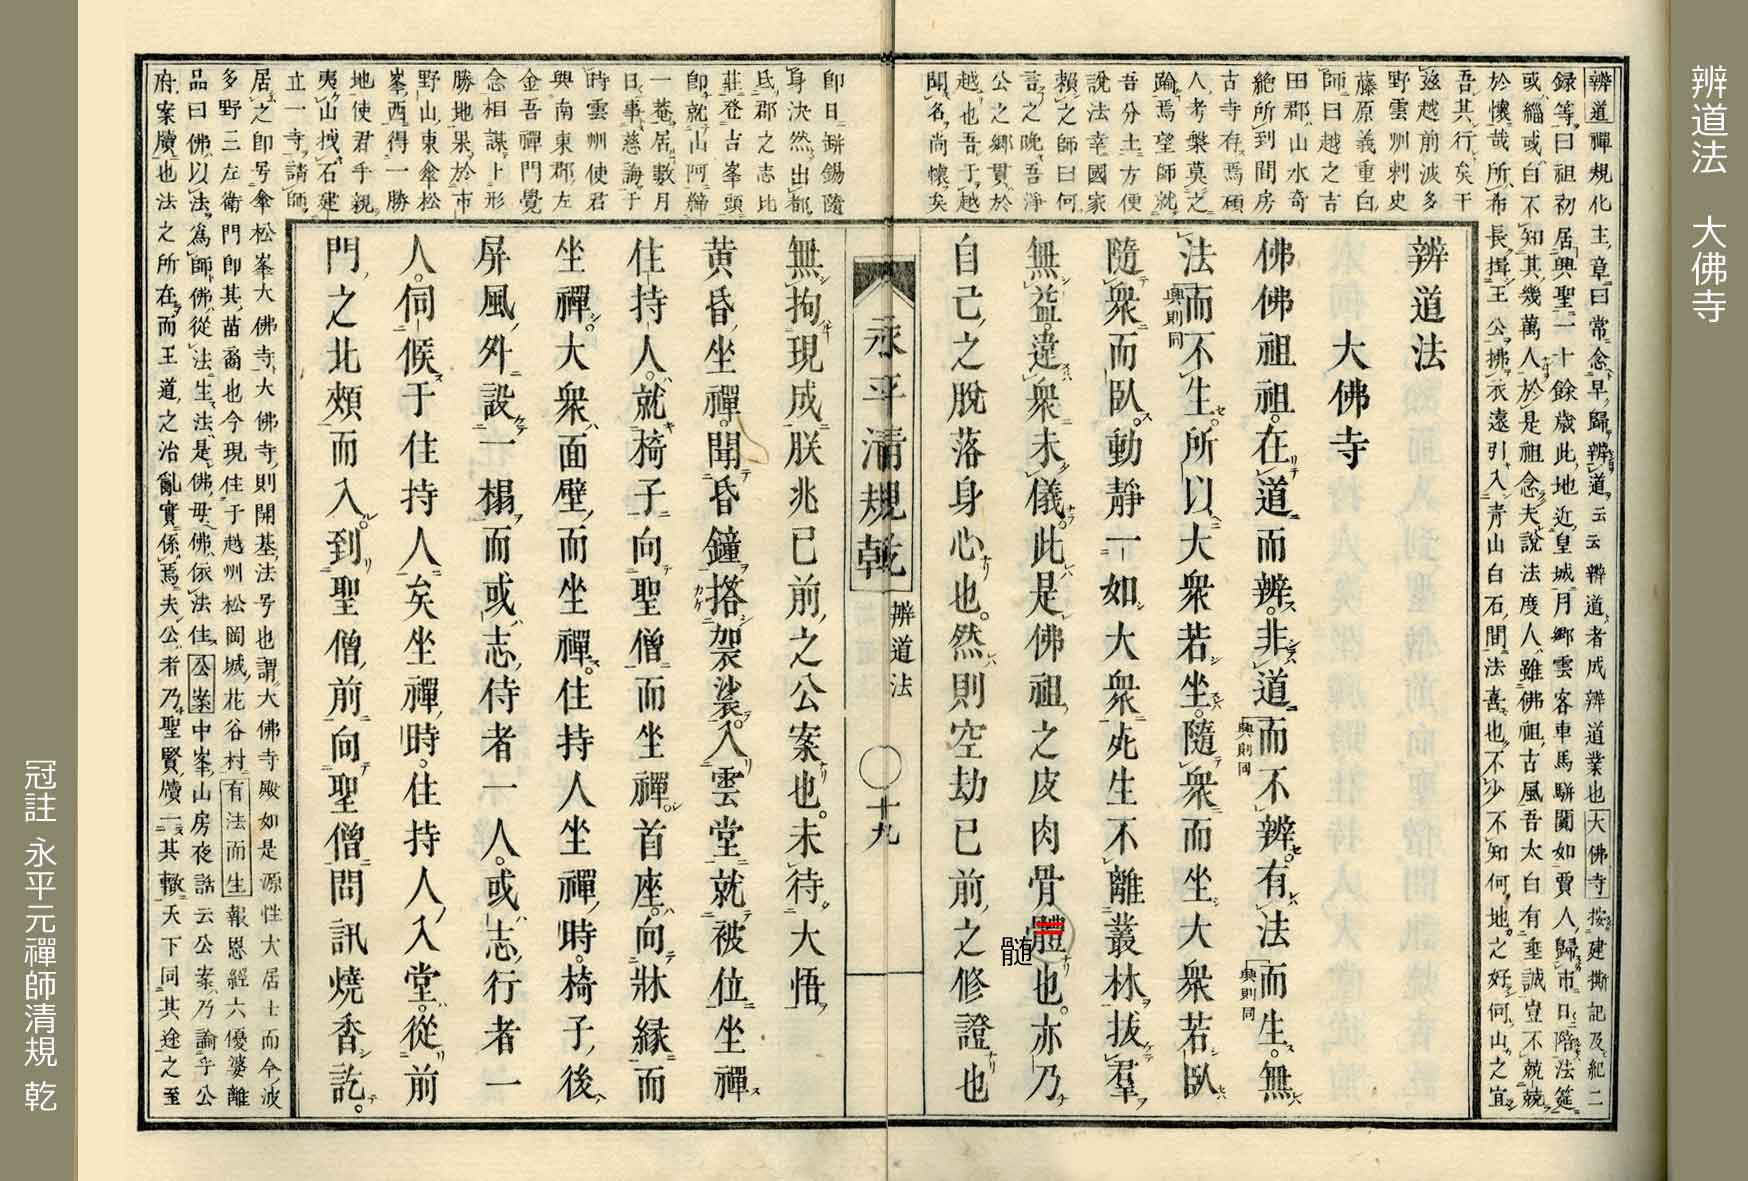 辨道法　大佛寺
辨道禪規化主章曰常念早歸辨道云云辨道者成辨道業也大佛寺按建撕記及紀二
録等曰祖初居興聖一十餘歲此地近皇城月郷雲客車馬駢闐如賈人歸市日陪法筵
或緇或白不知其幾萬人於是祖念夫說法度人雖佛祖古風吾太白有垂誡豈不兢兢
於懷哉所布長揖王公拂衣遠引入青山白石間法喜也不少不知何地之好何山之宜
吾其行矣于
茲越前波多
野雲州刺史
藤原義重白
師曰越之吉
田郡山水奇
絕所到間房
古寺存焉碩
人考槃莫之
踰焉望師就
吾分土方便
說法幸國家
賴之師曰何
言之晩吾淨
公之郷貫於
越也吾于越
聞名尚懷矣
辨道法
大佛寺
佛佛祖祖。在道而辨。非道而不辨。有法而生。無
興則同
興則同
法而不生。所以大衆若坐。隨衆而坐大衆若臥
興則同
隨衆而臥。動靜一如大衆死生不離叢林拔羣
無益。違衆未儀。此是佛祖之皮肉骨體也。亦乃
髄
自己之脫落身心也。然則空劫已前之修證也
永平清規乾　辨道法　〇十九
即日缾錫隨
身決然出都
氐郡之志比
莊登吉峯頭
即就山阿締
一菴居數月
日事慈誨于
時雲州使君
興南東郡左
金吾禪門覺
念相謀卜形
勝地果於市
野山東傘松
峯西得一勝
地使君手親
夷山找石建
立一寺請師
無拘現成朕兆已前之公案也。未待大悟
黄昏坐禪。聞昏鐘搭袈裟。入雲堂就被位坐禪
住持人。就椅子向聖僧而坐禪。首座。向牀縁而
坐禪。大衆面壁而坐禪。住持人坐禪時。椅子後
屏風外設一榻而或志侍者一人。或志行者一
人。伺候于住持人矣坐禪時。住持人入堂。從前
門之北頰而入。到聖僧前向聖僧問訊燒香訖。
居之即号傘松峯大佛寺大佛寺則開基法号也謂大佛寺殿如是源性大居士而今波
多野三左衛門即其苗裔也今現住于越州松岡城花谷村有法而生報恩經六優婆離
品曰佛以法為師佛從法生法是佛母佛依法住公案中峯山房夜話云公案乃論乎公
府案牘也法之所在而王道之治亂實係焉夫公者乃聖賢牘一其轍天下同其途之至
冠註 永平元禪師清規 乾